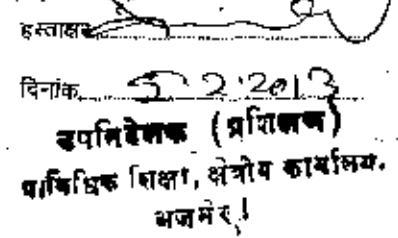 हस्ताक्षर
दिनांक 5 2 2013
उपनिदेशक (प्रशिक्षण)
प्राविधिक शिक्षा, क्षेत्रीय कार्यालय.
अजमेर!